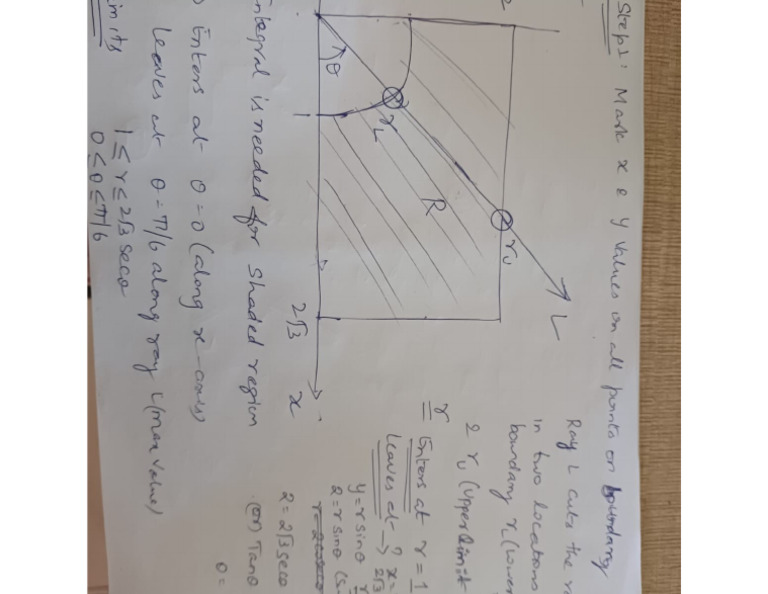 Step 1: Mark x & y values on all points on boundary
Ray L cuts the
in two locations
boundary r_L (lower
& r_U (Upper limit
2
θ
r_L
R
r_U
L
1
2√3
x
r Enters at r = 1
Leaves at → ? x =
2√3
y = r sinθ
2 = r sinθ
2 = 2√3 secθ
(or) Tanθ
θ =
integral is needed for shaded region
Enters at θ = 0 (along x-axis)
Leaves at θ = π/6 along ray L (max value)
limits
1 ≤ r ≤ 2√3 secθ
0 ≤ θ ≤ π/6